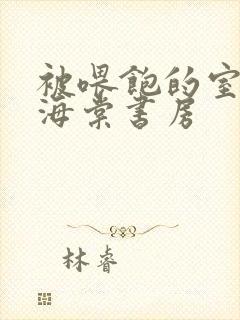 被喂饱的室
海棠书房
林睿